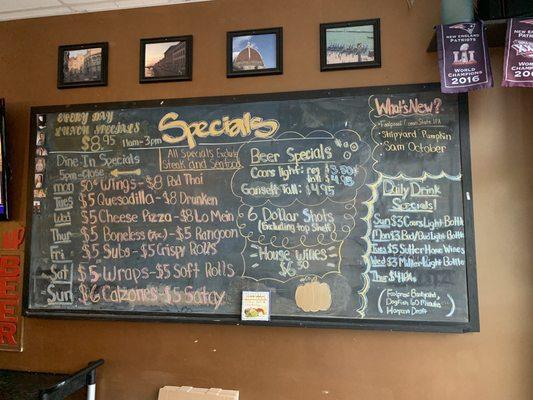 EVERY DAY
LUNCH SPECIALS
$8.95 11am-3pm
Specials
All Specials Exclude
Steak and Seafood
Dine-In Specials
5pm-close
mon 50¢ Wings - $8 Pad Thai
Tues $5 Quesadilla - $8 Drunken
Wed $5 Cheese Pizza - $8 Lo Mein
Thur $5 Boneless - $5 Rangoon
Fri $5 Subs - $5 Crispy Rolls
Sat $5 Wraps - $5 Soft Rolls
Sun $6 Calzones - $5 Satay
Beer Specials
Coors light: reg $3.50
tall $4.95
Gansett Tall $4.95
6 Dollar Shots
(Excluding top Shelf)
House Wines
$6.50
What's New?
Shipyard Pumpkin
Sam October
Daily Drink
Specials!
Sun $3 Coors Light Bottle
Mon $3 Bud/Bud Light Bottle
Tues $5 Sutter Home Wines
Wed $3 Miller Light Bottle
Thur $4
Dogfish 60 Minute
NEW ENGLAND
PATRIOTS
LI
WORLD
CHAMPIONS
2016
PATRIOTS
WORLD
CHAMPIONS
BEER